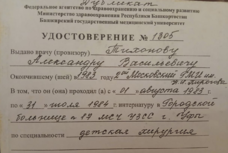 Дубликат
Федеральное агентство по здравоохранению и социальному развитию
Министерство здравоохранения Республики Башкортостан
Башкирский государственный медицинский университет
УДОСТОВЕРЕНИЕ № 1806
Выдано врачу (провизору) Тихонову
Александру Васильевичу
Окончившему (ей) 2ой Московский
В том, что он (она) проходил (а) с 01 августа
по 31 июля интернатуру в Городской
больнице МСЧ г. Уфа
по специальности детская хирургия